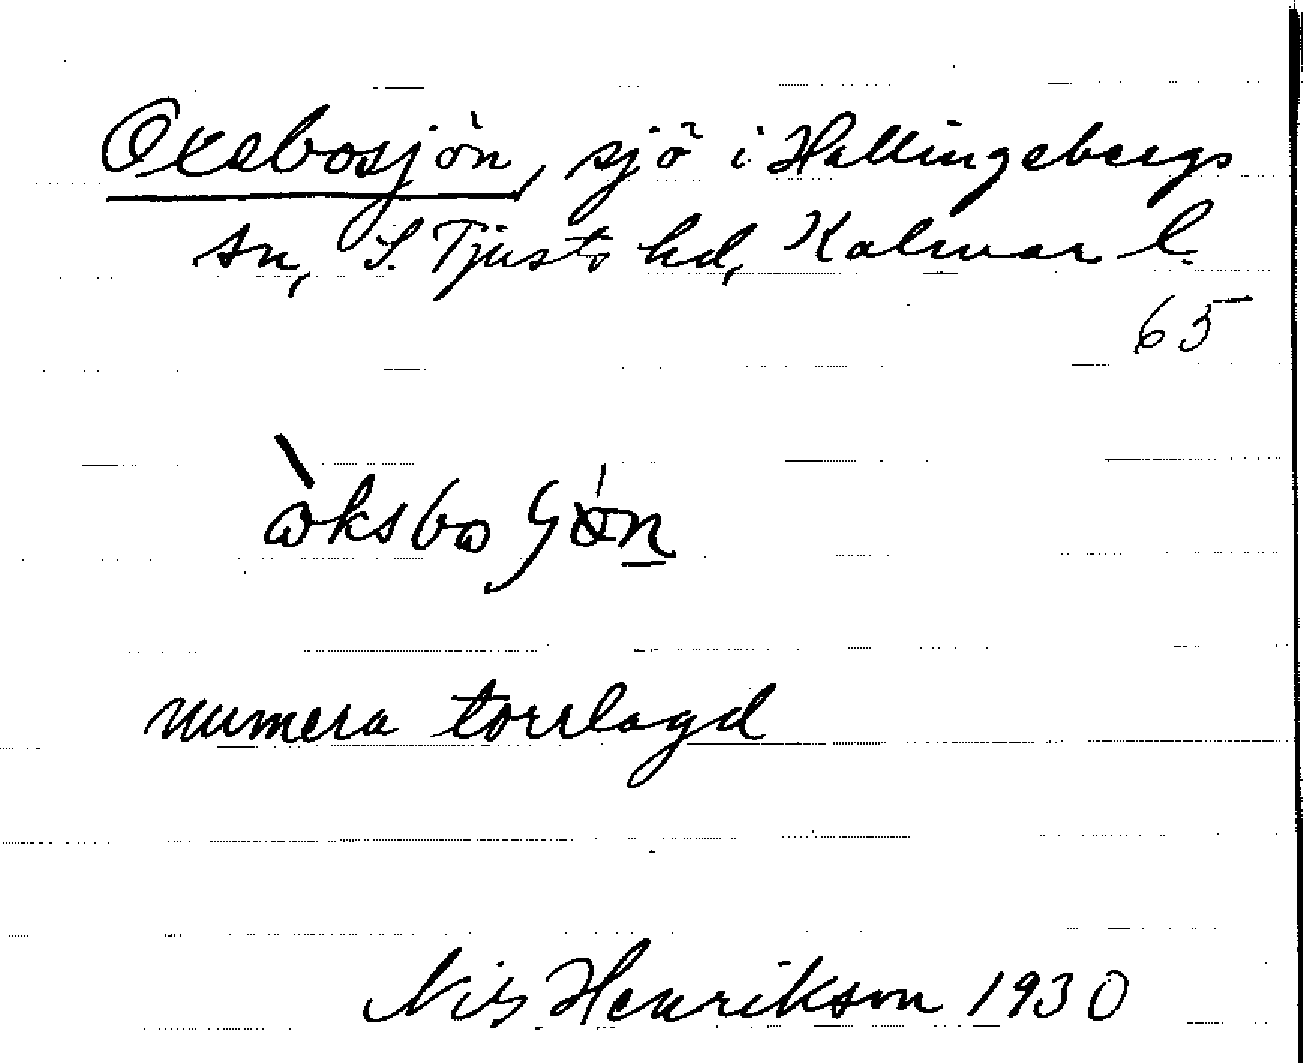 Oxebosjön, sjö i Hallingebergs
sn, S. Tjusts hd, Kalmar l.
65
numera torrlagd
Nils Henrikson 1930